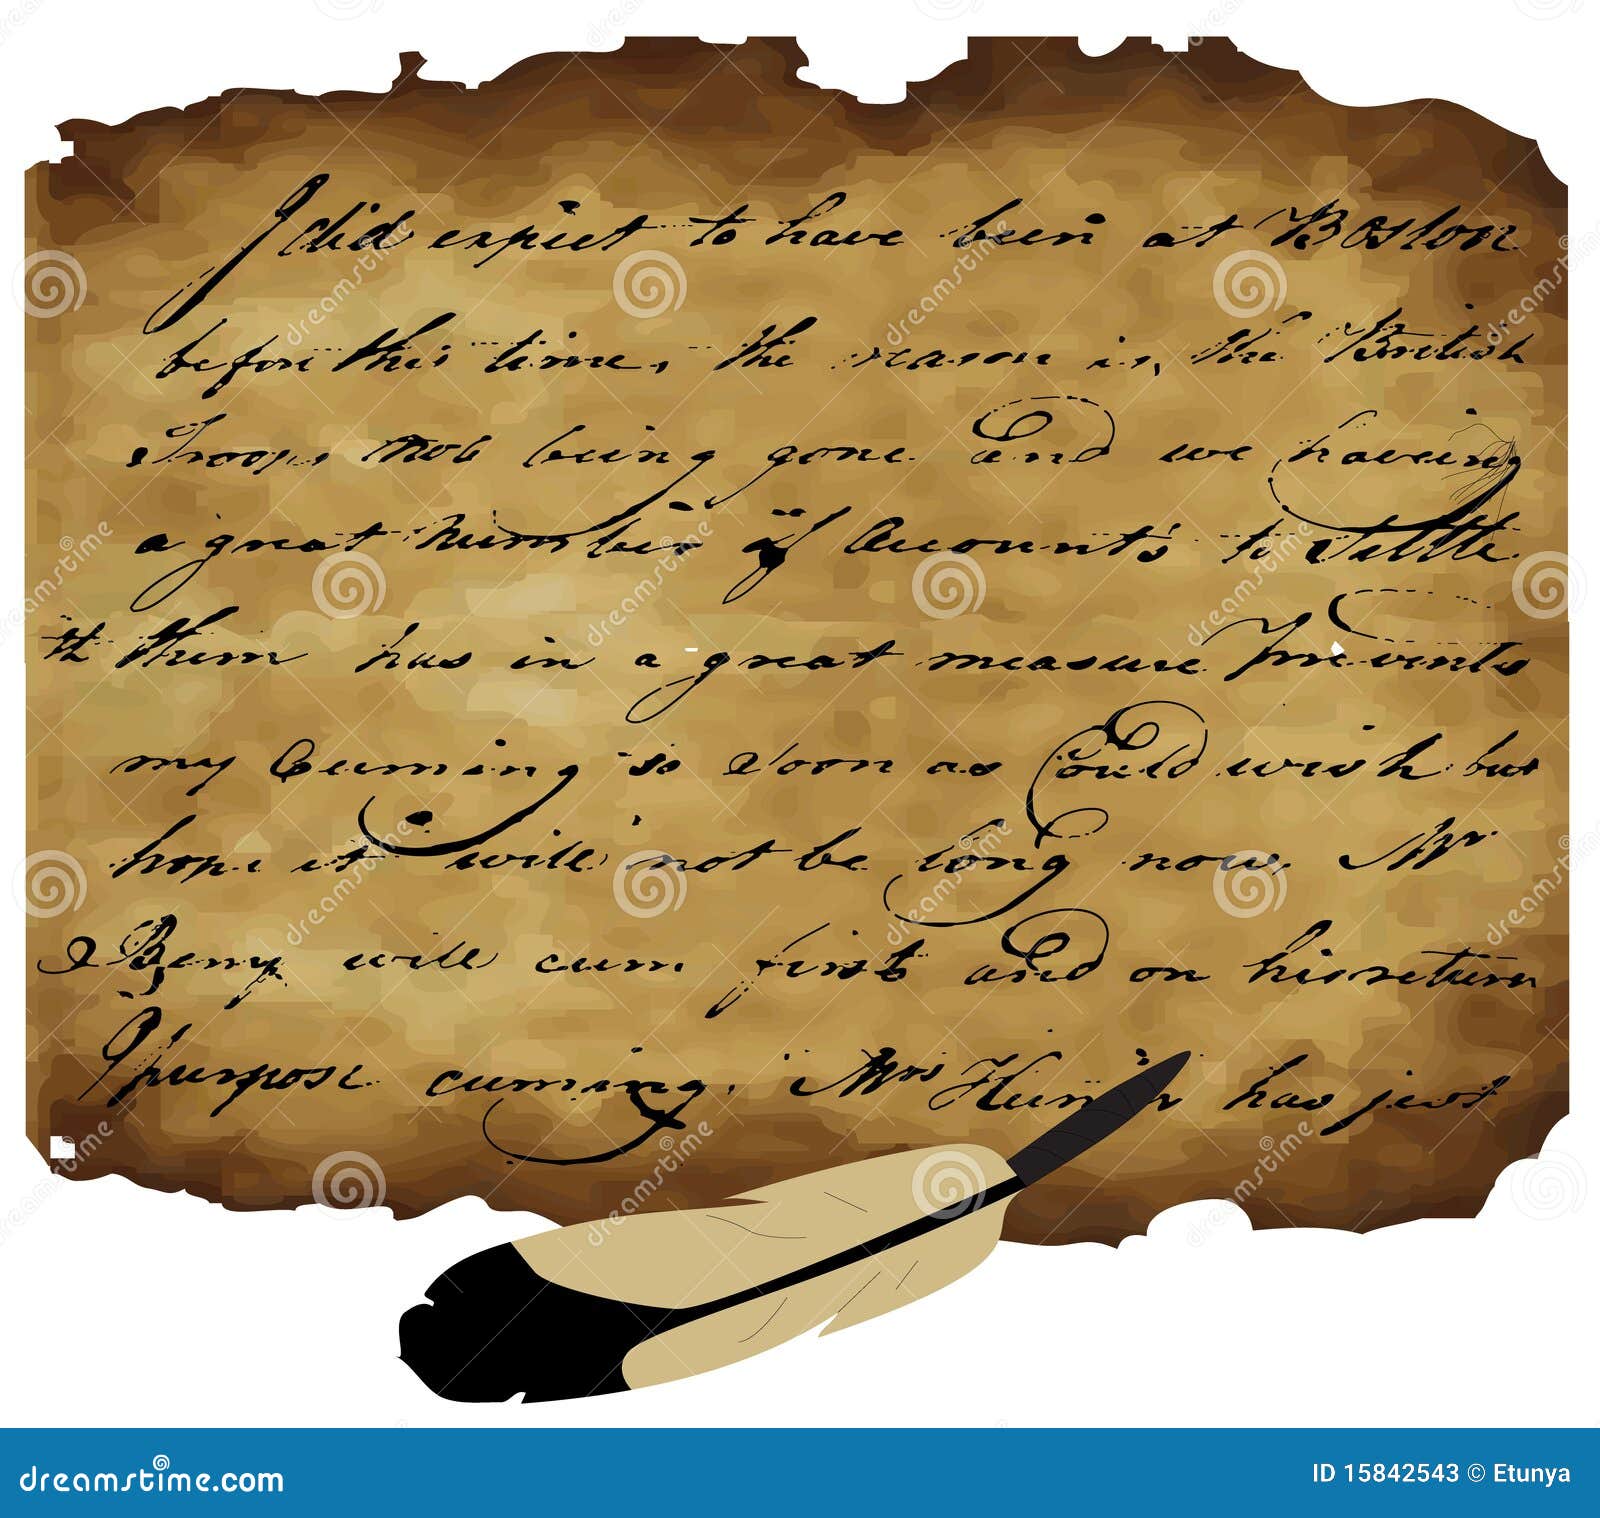 I did expect to have been at Boston
before this time, the reason is, the British
Troops not being gone and we haveing
a great Number of Accounts to Settle
them has in a great measure Prevents
my Cuming so soon as Could wish but
hope it will not be long now, Mr
Beny will cum first and on his return
I purpose cuming. Mrs Hunter has just
dreamstime
dreamstime.com
ID 15842543 © Etunya